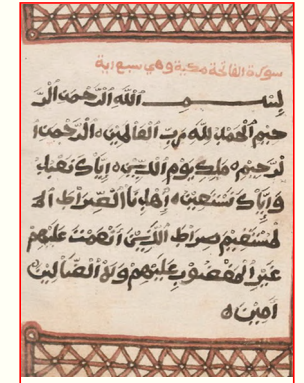 سورة الفاتحة مكية وهي سبع اية
بِسْمِ اَللَّهِ اَلرَّحْمَنِ اَلرَّ
حِيمِ اَلْحَمْدُ لِلَّهِ رَبِّ اِلْعَالَمِينَ اَلرَّحْمَنِ اِ
لرَّحِيمِ مَلِكِ يَوْمِ اِلدِّينِ إِيَّاكَ نَعْبُدُ
وَإِيَّاكَ نَسْتَعِينُ اِهْدِنَا اَلصِّرَاطَ اَلْ
مُسْتَقِيمَ صِرَاطَ اَلَّذِينَ أَنْعَمْتَ عَلَيْهِمْ
غَيْرِ اِلْمَغْضُوبِ عَلَيْهِمْ وَلَا اَلضَّالِّينَ
اَمِينَ